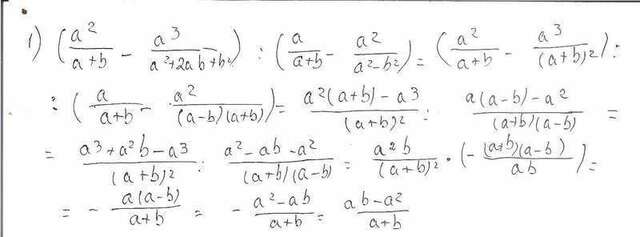 1) (a²/(a+b) - a³/(a²+2ab+b²)) : (a/(a+b) - a²/(a²-b²)) = (a²/(a+b) - a³/(a+b)²) :
: (a/(a+b) - a²/((a-b)(a+b))) = (a²(a+b) - a³)/(a+b)² : (a(a-b) - a²)/((a+b)(a-b)) =
= (a³+a²b-a³)/(a+b)² : (a²-ab-a²)/((a+b)(a-b)) = a²b/(a+b)² · (-(a+b)(a-b)/ab) =
= - a(a-b)/(a+b) = - (a²-ab)/(a+b) = (ab-a²)/(a+b)